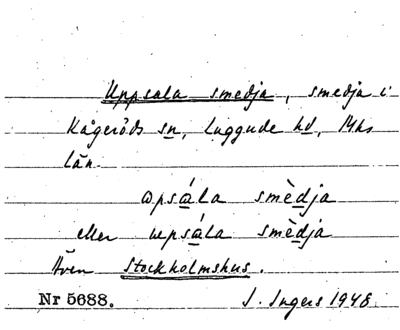 Uppsala smedja, smedja i
Kågeröds sn, Luggude hd, Mhs
län.
ωpsála smèdja
eller upsála smèdja
Även Stockholmshus.
Nr 5688. I. Ingers 1948.